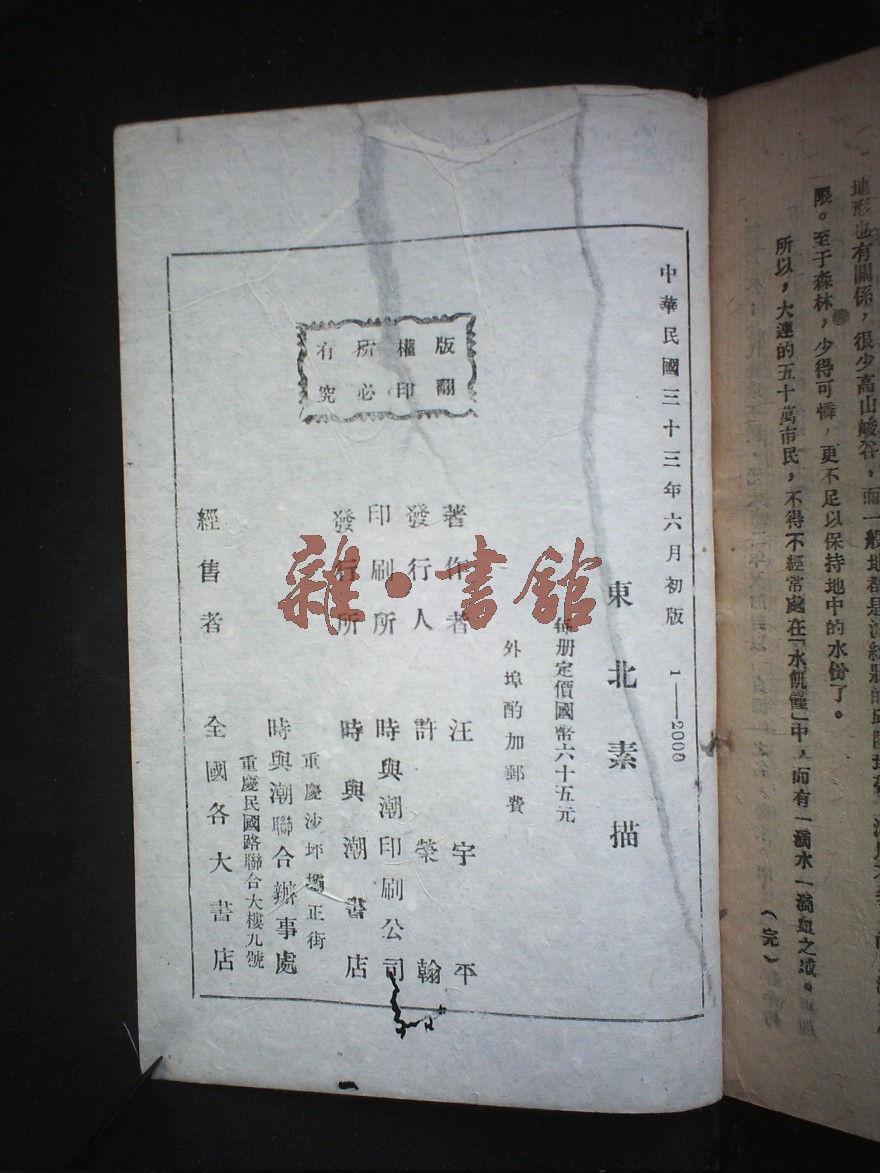 地形也有關係，很少高山峻谷，而一般地都是
限。至于森林，少得可憐，更不足以保持地中的水份了。
所以，大連的五十萬市民，不得不經常處在「水飢饉」中，而有一滴水一滴血之域。
（完）
中華民國三十三年六月初版 1—2000
東北素描
每册定價國幣六十五元
外埠酌加郵費
版權所有
翻印必究
著作者 汪宇平
發行人 許榮翰
印刷所 時與潮印刷公司
發行所 時與潮書店
重慶沙坪壩正街
時與潮聯合辦事處
重慶民國路聯合大樓九號
經售者 全國各大書店
雜·書館